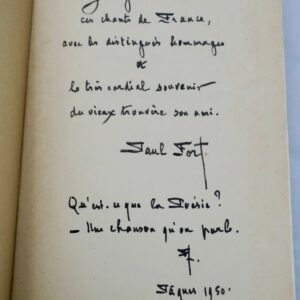 ces chants de France,
avec les distingués hommages
&
le très cordial souvenir
du vieux trouvère son ami.
Paul Fort
Qu'est-ce que la Poésie?
— Une chanson qu'on parle.
Pâques 1950.